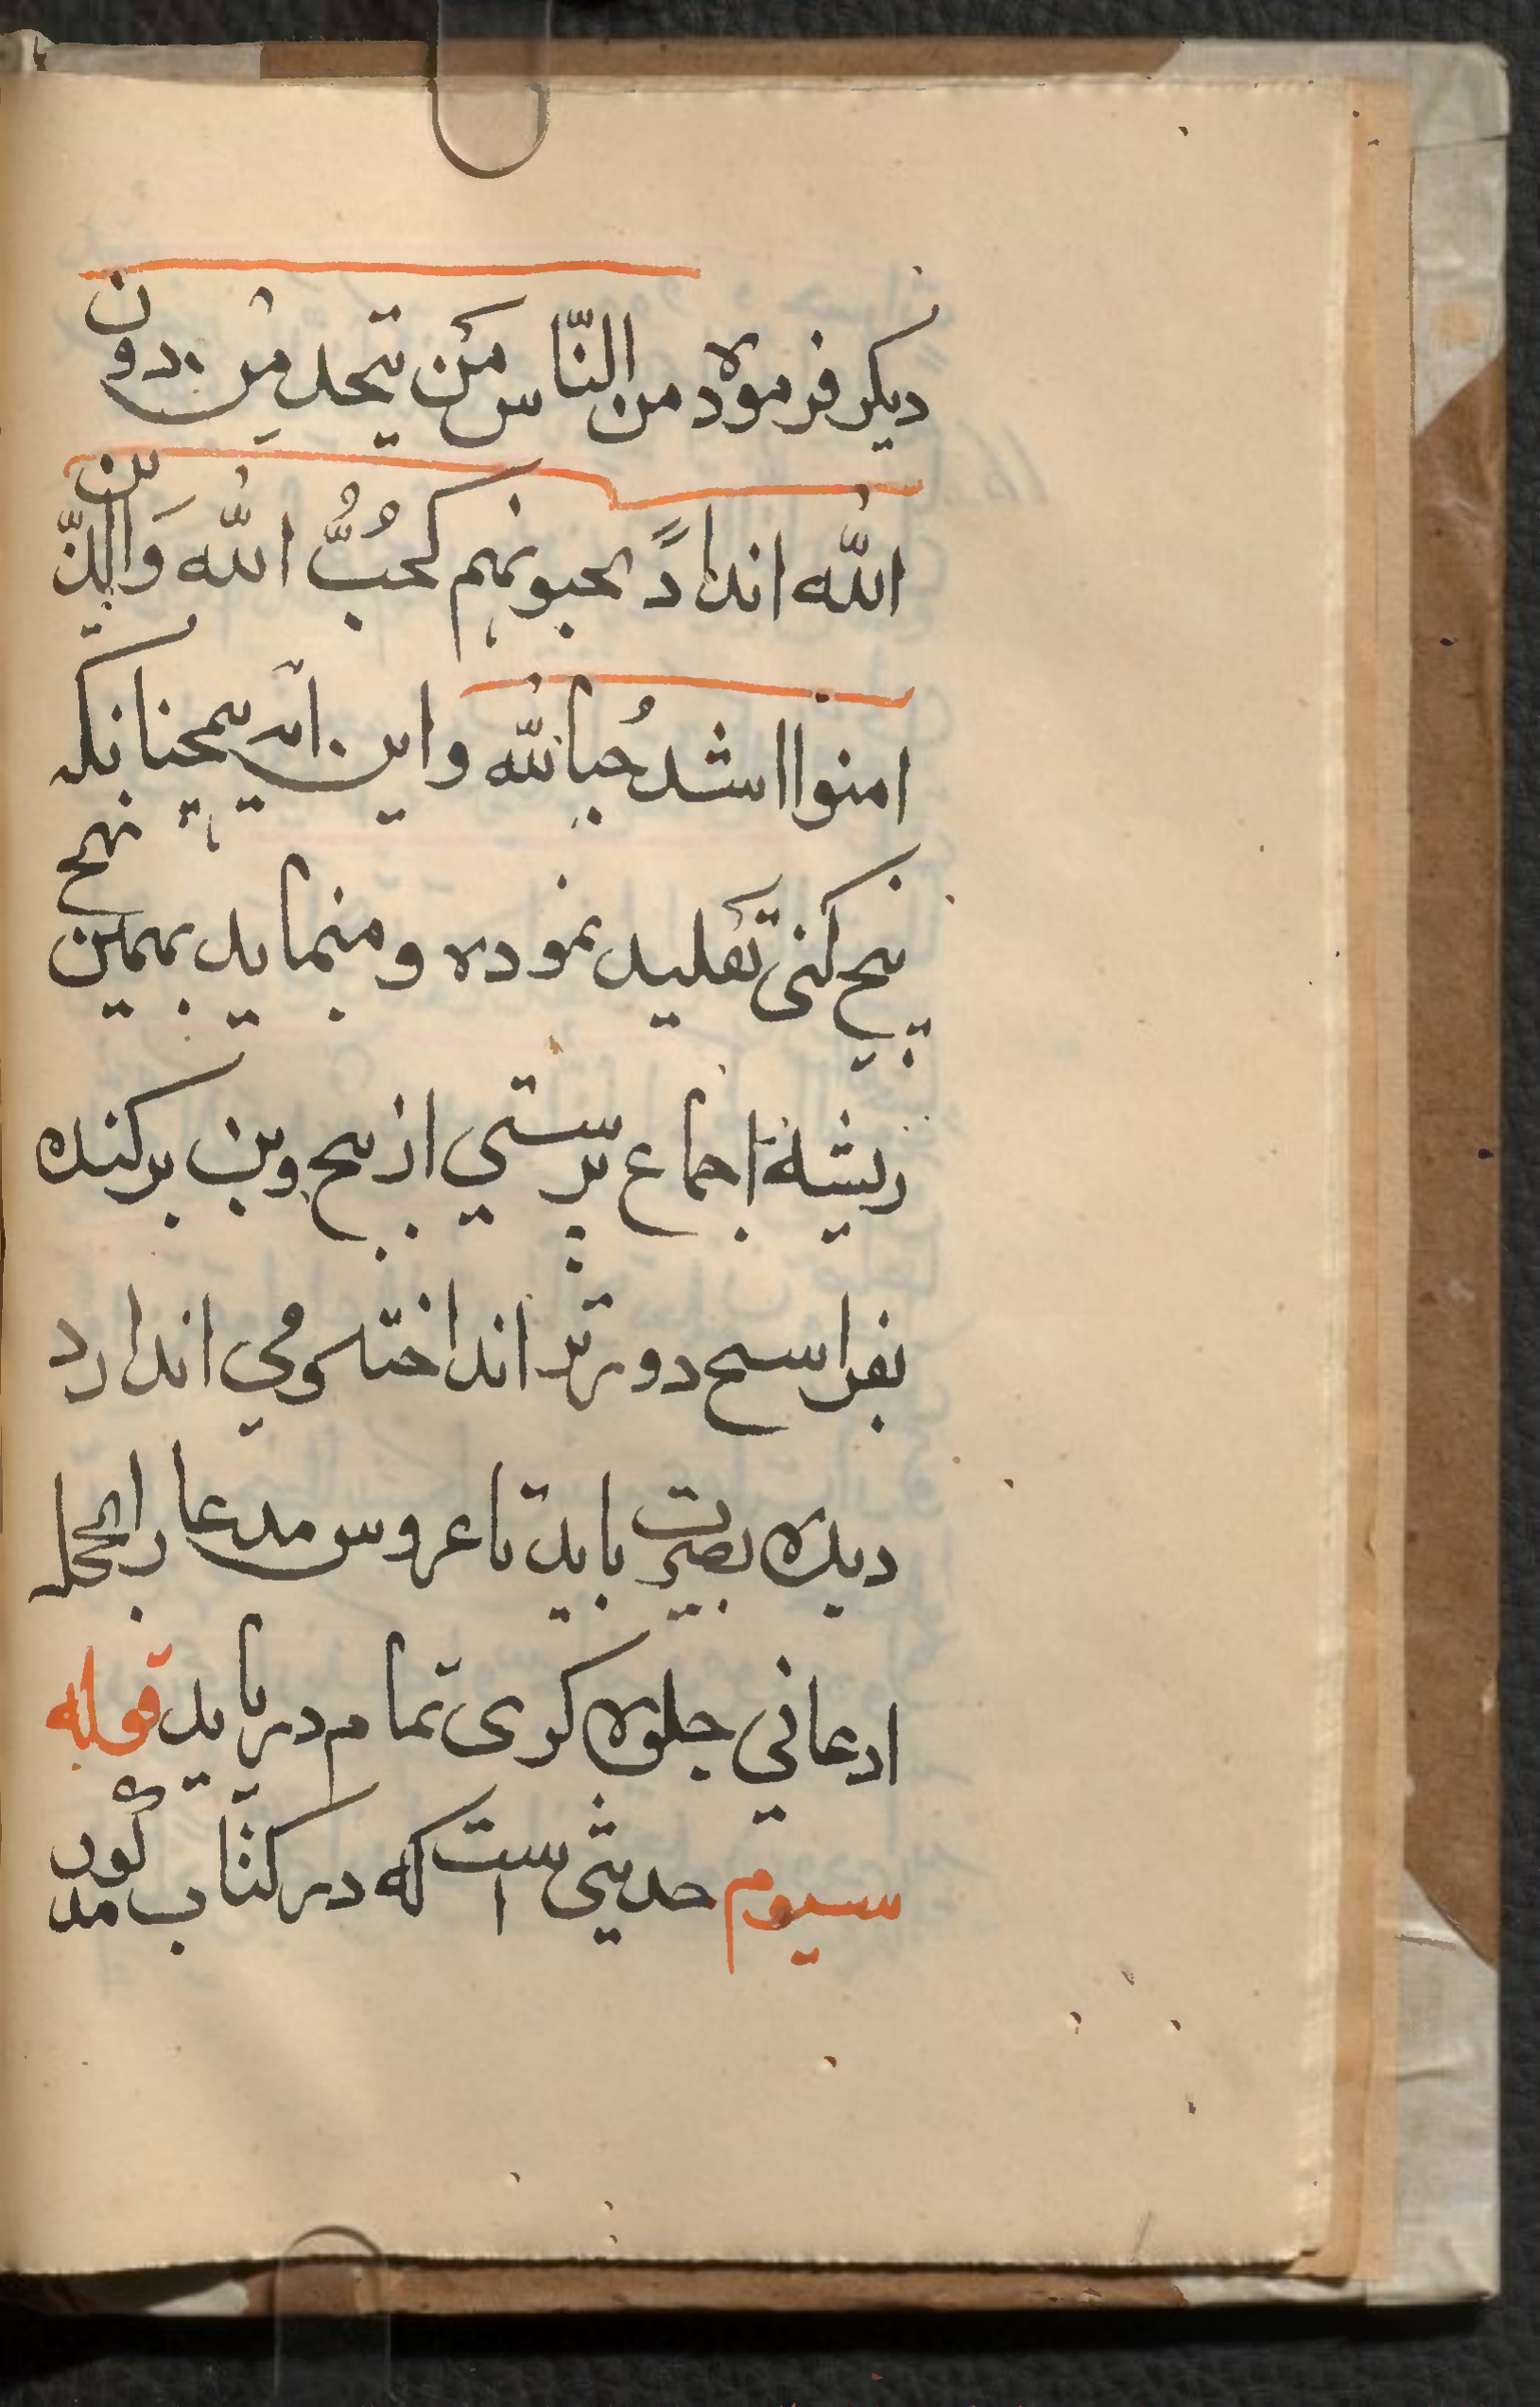 دیکر فرموده من النّاس مَن یتخذ مِن دون
الله انداداً یحبونهم کحُبُّ الله وَالذّین
امنوا اشد حُبا لله و این آیه همچنانکه
بیخ کنی تقلید نموده و مینماید بهمین نهج
ریشهٔ اجماع پرستی از بیخ و بن برکنده
بفراسخ دورتر انداخته و می اندارد
دیده بصیرت باید تا عروس مدعا را بحجله
ادعانی جلوه کری تمام دریابد قوله
سیوم حدیثی است که در کتاب مذکور